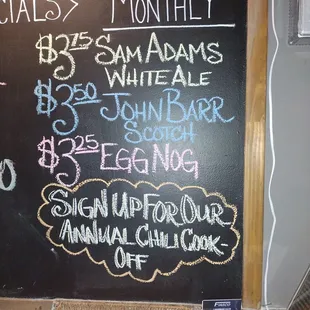 CIALS> MONTHLY
$3.75 SAM ADAMS
WHITE ALE
$3.50 JOHN BARR
SCOTCH
$3.25 EGG NOG
SIGN UP FOR OUR
ANNUAL CHILI COOK-
OFF